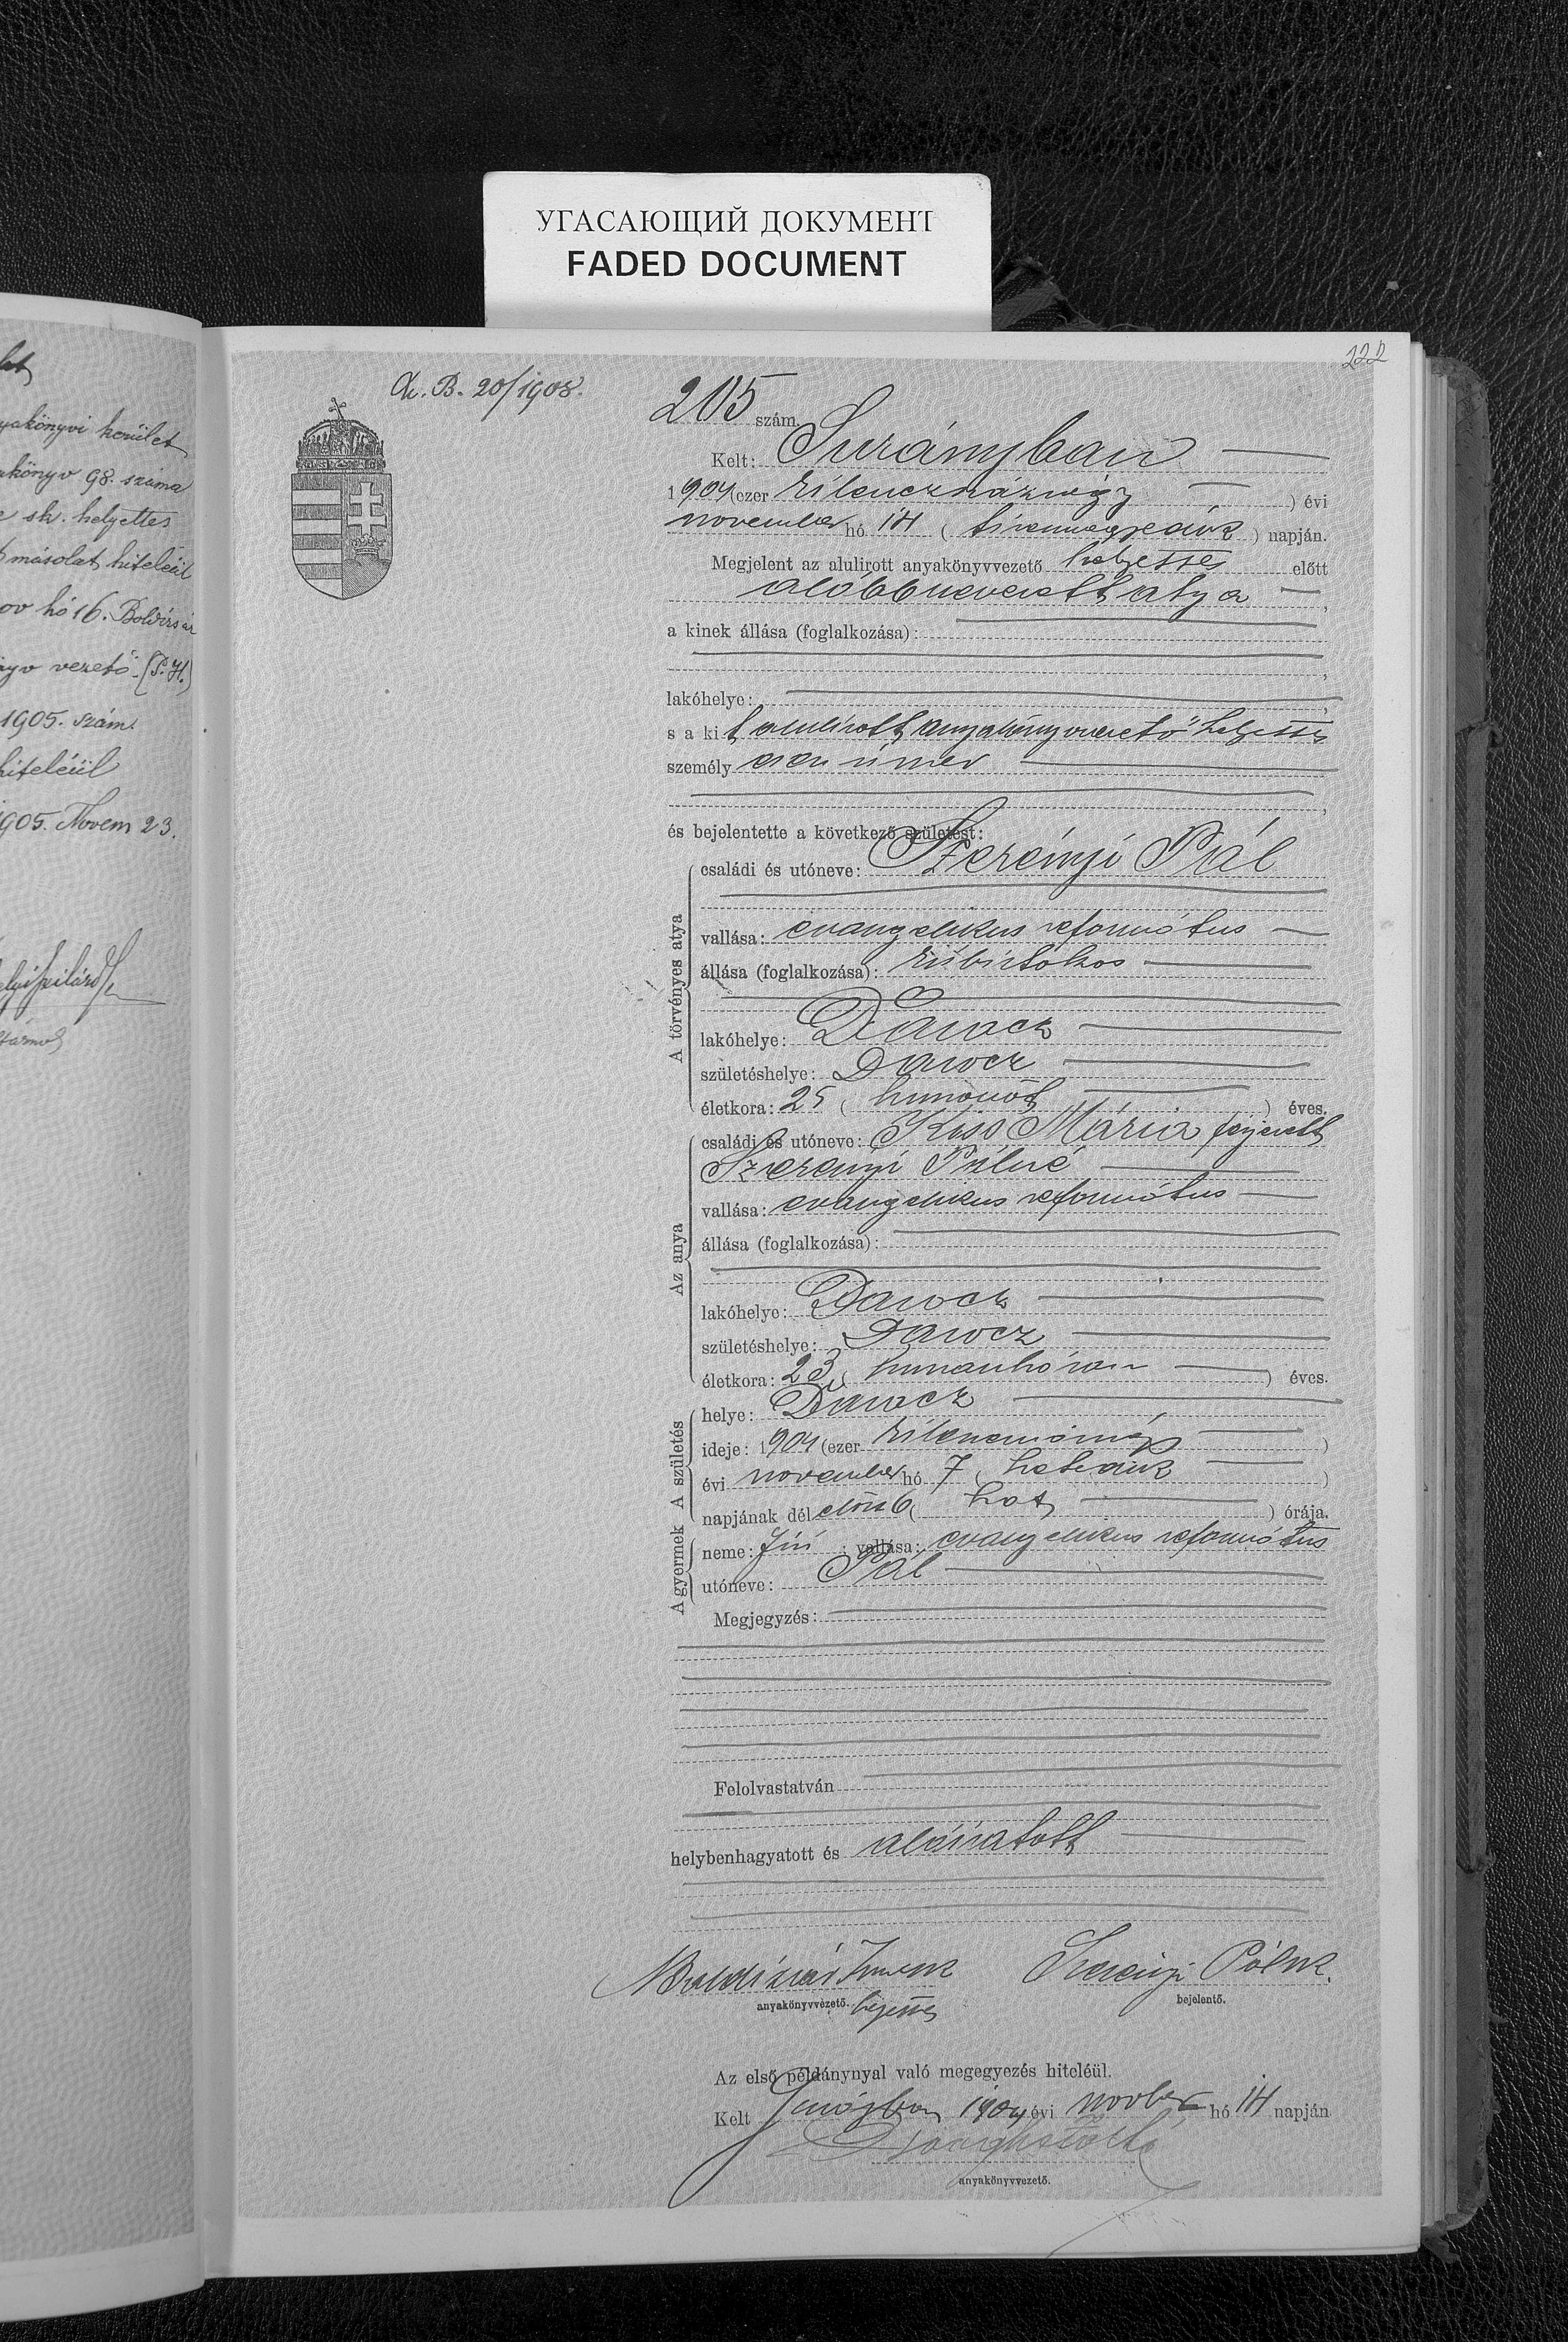 УГАСАЮЩИЙ ДОКУМЕНТ
FADED DOCUMENT
yakönyvi kerület
akönyv 98. száma
sk. helyettes
másolat hiteléül
nov hó 16. Boldizsár
nyv vezető. (P. H.)
1905. szám.
hiteléül
1905. Novem 23.
222
B. 20/1908.
205 szám.
Kelt: Surányban
1904 (ezer kilenczszáznégy) évi
november hó 14 (tizennegyedik) napján.
Megjelent az alulirott anyakönyvvezető helyettes előtt
alább nevezett atya,
a kinek állása (foglalkozása):
lakóhelye:
s a kit alulirott anyakönyvvezető helyettes
személy
és bejelentette a következő születést:
A törvényes atya
családi és utóneve: Szerényi Pál
vallása: evangelikus református
állása (foglalkozása): kisbirtokos
lakóhelye: Darocz
születéshelye: Darocz
életkora: 25 (huszonöt) éves.
Az anya
családi és utóneve: Kiss Mária férjezett
Szerényi Pálné
vallása: evangelikus református
állása (foglalkozása):
lakóhelye: Darocz
születéshelye: Darocz
életkora: 23 (huszonhárom) éves.
A születés
helye: Darocz
ideje: 1904 (ezer kilenczszáznégy)
évi november hó 7 (hetedik)
napjának dél előtt 6 (hat) órája.
A gyermek
neme: fiú; vallása: evangelikus református
utóneve: Pál
Megjegyzés:
Felolvastatván
helybenhagyatott és aláiratott
Boldizsár Imre
anyakönyvvezető. helyettes
Szerényi Pál
bejelentő.
Az első példánynyal való megegyezés hiteléül.
Kelt 1904 évi novber hó 14 napján
anyakönyvvezető.